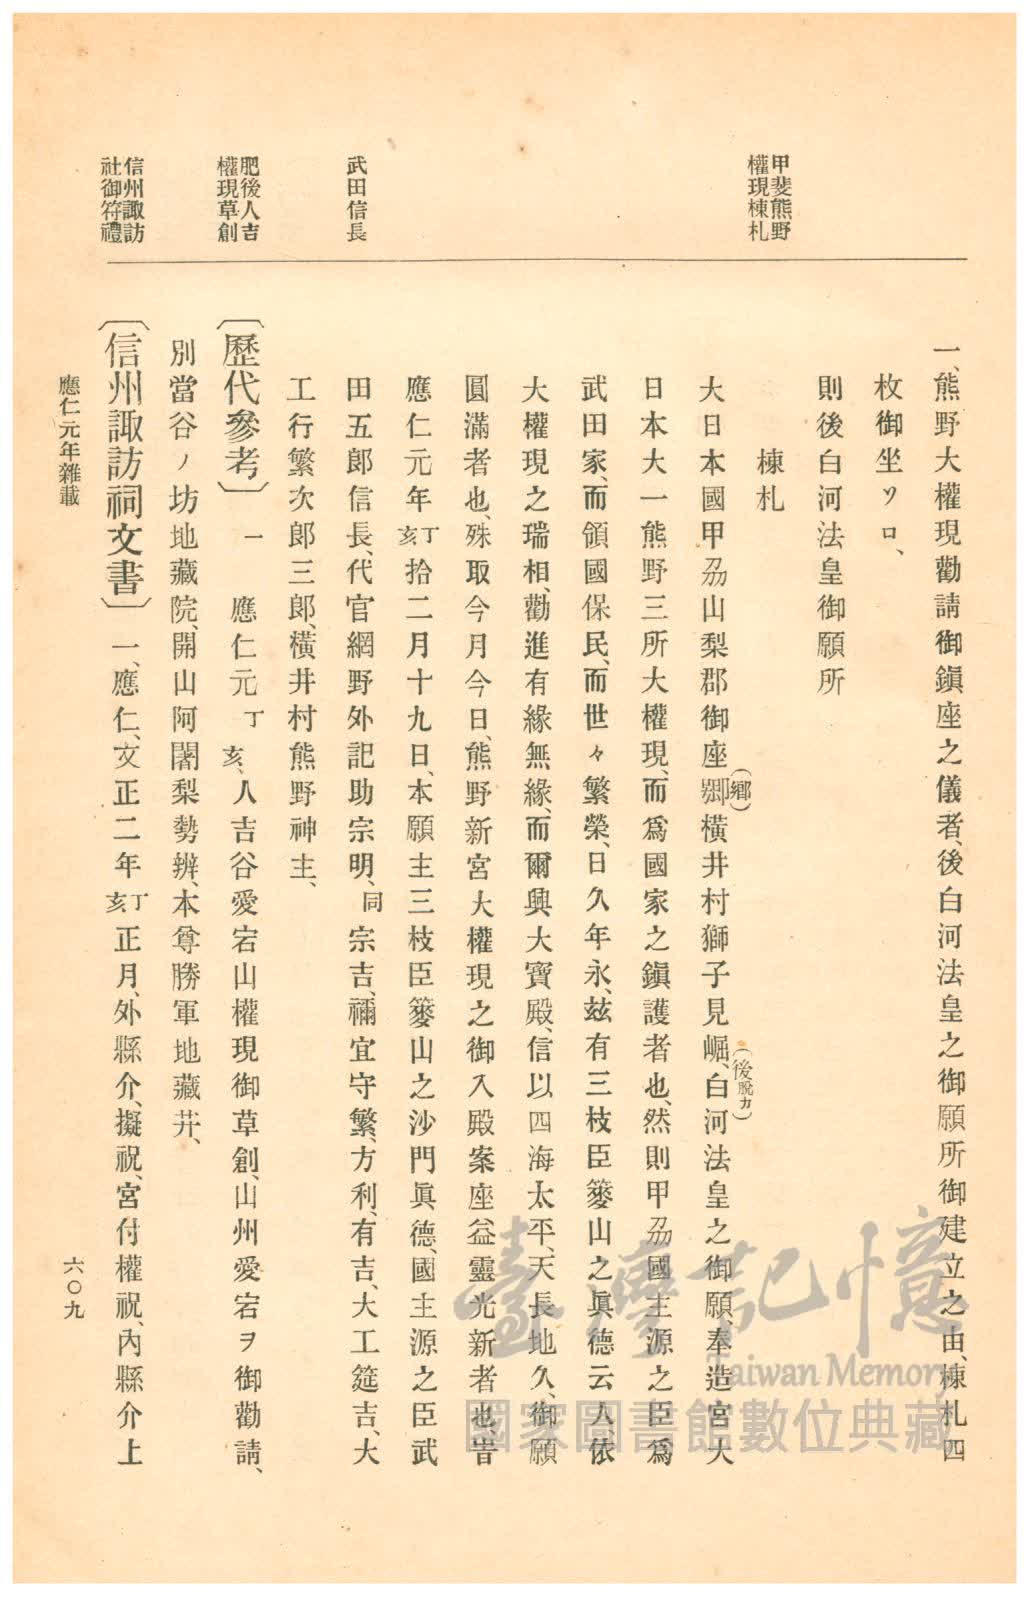 甲斐熊野
權現棟札
武田信長
肥後人吉
權現草創
信州諏訪
社御符禮
一、熊野大權現勸請御鎭座之儀者、後白河法皇之御願所御建立之由、棟札四
枚御坐ソロ、
則後白河法皇御願所
棟札
大日本國甲刕山梨郡御座(鄕)橫井村獅子見崛、(後脫カ)白河法皇之御願、奉造宮大
日本大一熊野三所大權現、而爲國家之鎭護者也、然則甲刕國主源之臣爲
武田家、而領國保民、而世々繁榮、日久年永、玆有三枝臣篸山之眞德云人、依
大權現之瑞相、勸進有緣無緣、而爾興大寶殿、信以四海太平、天長地久、御願
圓滿者也、殊取今月今日、熊野新宮大權現之御入殿案座益靈光新者也、旹
應仁元年丁亥拾二月十九日、本願主三枝臣篸山之沙門眞德、國主源之臣武
田五郎信長、代官網野外記助宗明、同宗吉、禰宜守繁、方利、有吉、大工筵吉、大
工行繁次郎三郎、橫井村熊野神主、
〔歷代參考〕一 應仁元丁亥、人吉谷愛宕山權現御草創、山州愛宕ヲ御勸請、
別當谷ノ坊地藏院、開山阿闍梨勢辨、本尊勝軍地藏幷、
〔信州諏訪祠文書〕一、應仁、文正二年丁亥正月、外縣介、擬祝、宮付權祝、內縣介上
應仁元年雜載
六〇九
臺灣記憶
Taiwan Memory
國家圖書館數位典藏